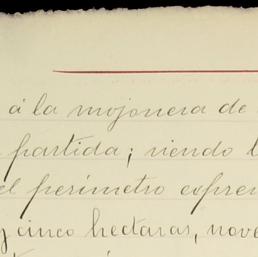 á la mojonera de
partida; siendo l
el perímetro expre
y cinco hectaras, nove